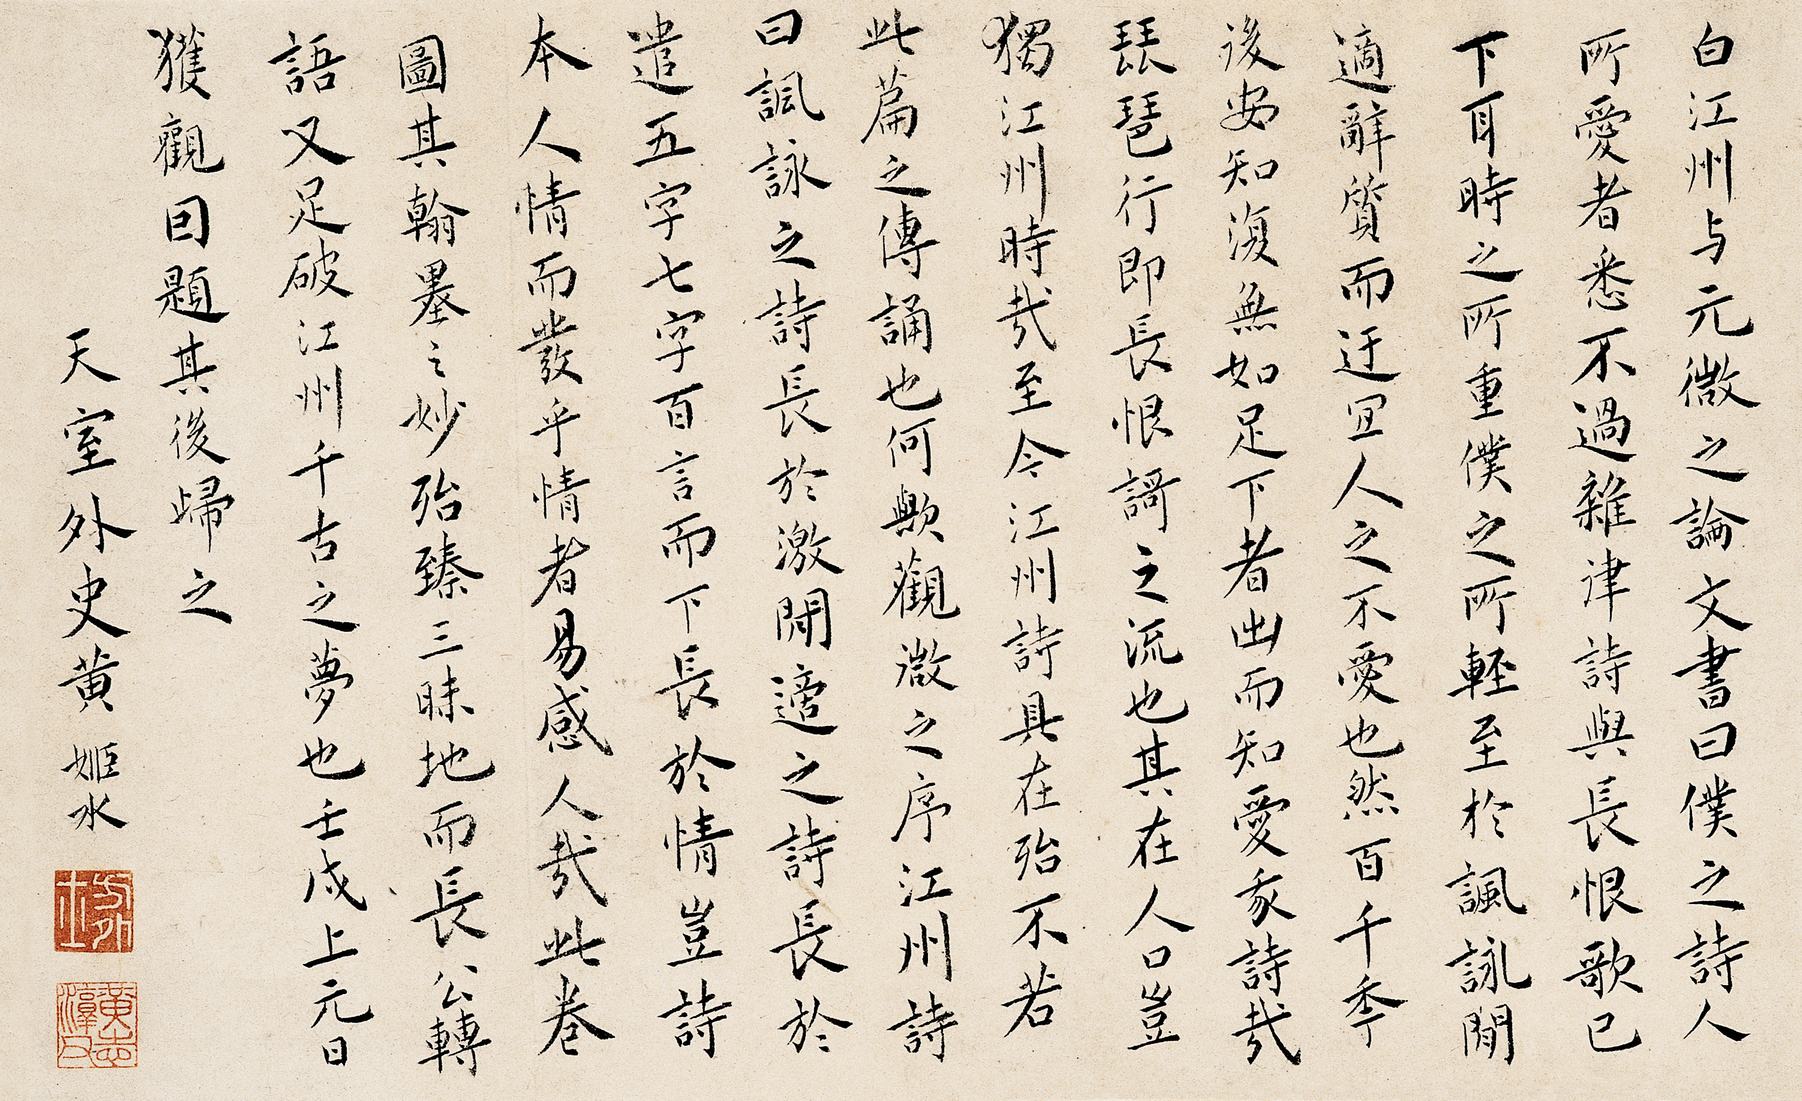 白江州与元微之論文書曰僕之詩人
所愛者悉不過雜津詩與長恨歌已
下耳時之所重僕之所輕至於諷詠閒
適辭質而迂宜人之不愛也然百千季
後安知復無如足下者出而知愛我詩哉
琵琶行即長恨謌之流也其在人口豈
獨江州時哉至今江州詩具在殆不若
此篇之傳誦也何歟觀微之序江州詩
曰諷詠之詩長於激閒適之詩長於
遣五字七字百言而下長於情豈詩
本人情而發乎情者易感人哉此卷
圖其翰墨之妙殆臻三昧地而長公轉
語又足破江州千古之夢也壬戌上元日
獲觀因題其後歸之
天室外史黄姬水